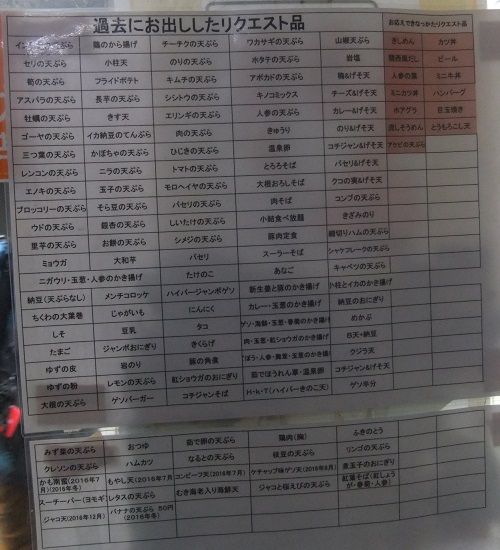 過去にお出ししたリクエスト品
お応えできなっかたリクエスト品
鶏のから揚げ チーチクの天ぷら ワカサギの天ぷら 山椒天ぷら きしめん カツ丼
セリの天ぷら 小柱天 のりの天ぷら ホタテの天ぷら 岩塩 関西風だし ビール
筍の天ぷら フライドポテト キムチの天ぷら アボカドの天ぷら 梅&げそ天 人参の葉 ミニキ丼
アスパラの天ぷら 長芋の天ぷら シシトウの天ぷら キノコミックス チーズ&げそ天 ミニカツ丼 ハンバーグ
牡蠣の天ぷら きす天 エリンギの天ぷら 人参の天ぷら カレー&げそ天 ホアグラ 目玉焼き
ゴーヤの天ぷら イカ納豆のてんぷら 肉の天ぷら きゅうり のり&げそ天 流しそうめん とうもろこし天
三つ葉の天ぷら かぼちゃの天ぷら ひじきの天ぷら 温泉卵 コチジャン&げそ天 アケビの天ぷら
レンコンの天ぷら ニラの天ぷら トマトの天ぷら とろろそば パセリ&げそ天
エノキの天ぷら 玉子の天ぷら モロヘイヤの天ぷら 大根おろしそば クコの実&げそ天
ブロッコリーの天ぷら そら豆の天ぷら パセリの天ぷら 肉そば コンブの天ぷら
ウドの天ぷら 銀杏の天ぷら しいたけの天ぷら 小鉢食べ放題 きざみのり
里芋の天ぷら お餅の天ぷら シメジの天ぷら 豚肉定食 細切りハムの天ぷら
ミョウガ 大和芋 パセリ スーラーそば シャケフレークの天ぷら
ニガウリ・玉葱・人参のかき揚げ たけのこ あなご キャベツの天ぷら
納豆(天ぷらなし) メンチコロッケ ハイパージャンボゲソ 新生姜と豚のかき揚げ 小柱とイカのかき揚げ
ちくわの大葉巻 じゃがいも にんにく カレー・玉葱のかき揚げ 納豆のおにぎり
しそ 豆乳 タコ ゲソ・海鮮・玉葱・春菊のかき揚げ めかぶ
たまご ジャンボおにぎり きくらげ 肉・玉葱・紅ショウガのかき揚げ B天+納豆
ゆずの皮 岩のり 豚の角煮 ごぼう・人参・舞茸・玉葱のかき揚げ クジラ天
ゆずの粉 レモンの天ぷら 紅ショウガのおにぎり 茹でほうれん草・温泉卵 コチジャン&げそ天
大根の天ぷら ゲソバーガー コチジャンそば H・k・T(ハイパーきのこ天) ゲソ半分
みず菜の天ぷら おつゆ 茹で卵の天ぷら 鶏肉(胸) ふきのとう
クレソンの天ぷら ハムカツ なるとの天ぷら 枝豆の天ぷら リンゴの天ぷら
かも南蛮(2016年7月)(2016年冬) もやし天(2016年7月) コンビーフ天(2016年7月) ケチャップ味ゲソ天(2016年8月) 煮玉子のおにぎり
スーチーパー(ヨモギ) レタスの天ぷら むき海老入り海鮮天 ジャコと桜えびの天ぷら 紅葉そば(紅しょうが・春菊・人参)
ジャコ天(2016年12月) バナナの天ぷら 50円(2016年冬)